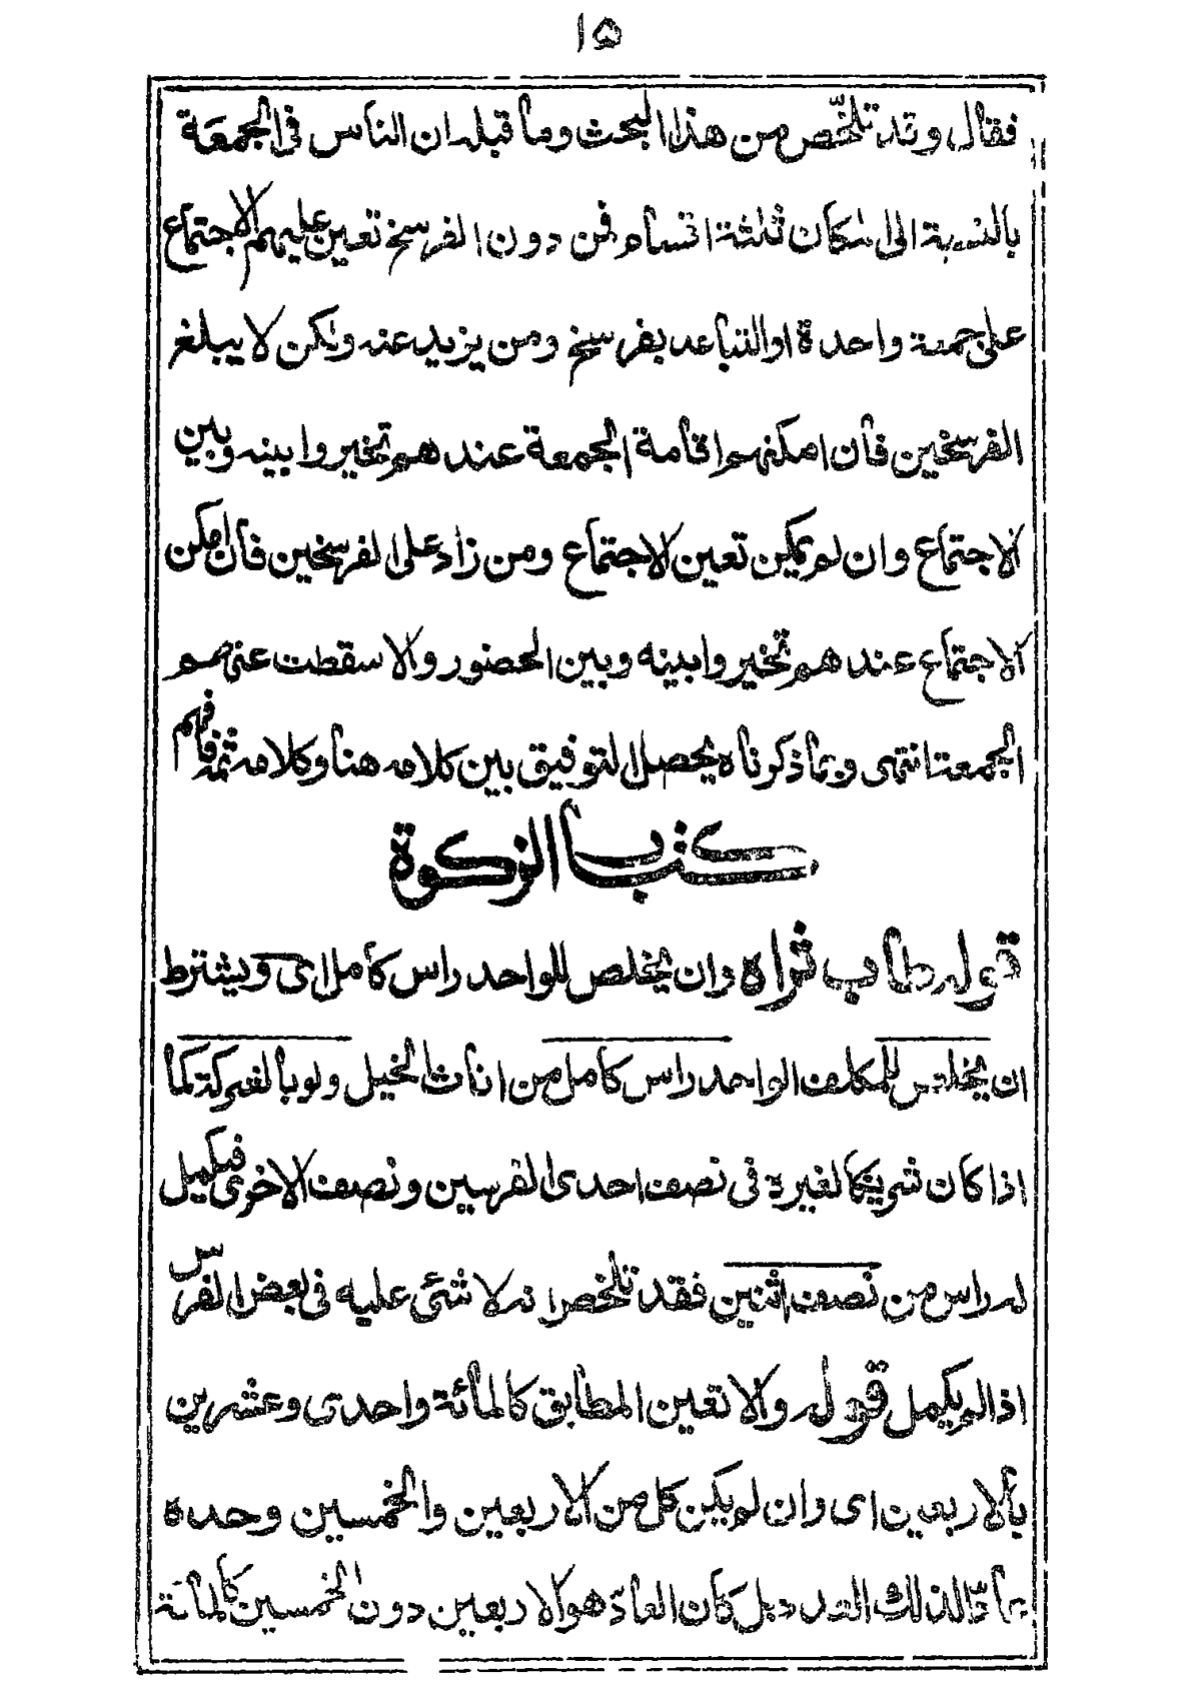 ۱۵
فقال وقد تلخّص من هذا البحث وما قبله ان الناس فى الجمعة
بالنسبة الى اسكان ثلثة اقسام فمن دون الفرسخ تعين عليهم الاجتماع
على جمعة واحدة او التباعد بفرسخ ومن يزيد عنه ولكن لا يبلغ
الفرسخين فان امكنهم اقامة الجمعة عندهم تخيروا بينه وبين
الاجتماع وان لم يمكن تعين الاجتماع ومن زاد على الفرسخين فان امكن
الاجتماع عندهم تخيروا بينه وبين الحضور والا سقطت عنهم
الجمعة انتهى وبما ذكرناه يحصل التوفيق بين كلامه هنا وكلامه ثمه فافهم
كتاب الزكوة
قوله طاب ثراه وان يخلص للواحد راس كامل اى ويشترط
ان يخلص للمكلف الواحد راس كامل من اناث الخيل ولو بالشركة كما
اذا كان شريكا لغيره فى نصف احدى الفرسين ونصف الاخرى فيكمل
له راس من نصف اثنين فقد تلخص انه لا شئ عليه فى بعض الفرس
اذا لم يكمل قوله والا تعين المطابق كالمائة واحدى وعشرين
بالاربعين اى وان لم يكن كل من الاربعين والخمسين وحده
عادّا لذلك العدد بل كان العادّ هو الاربعين دون الخمسين كالمائة